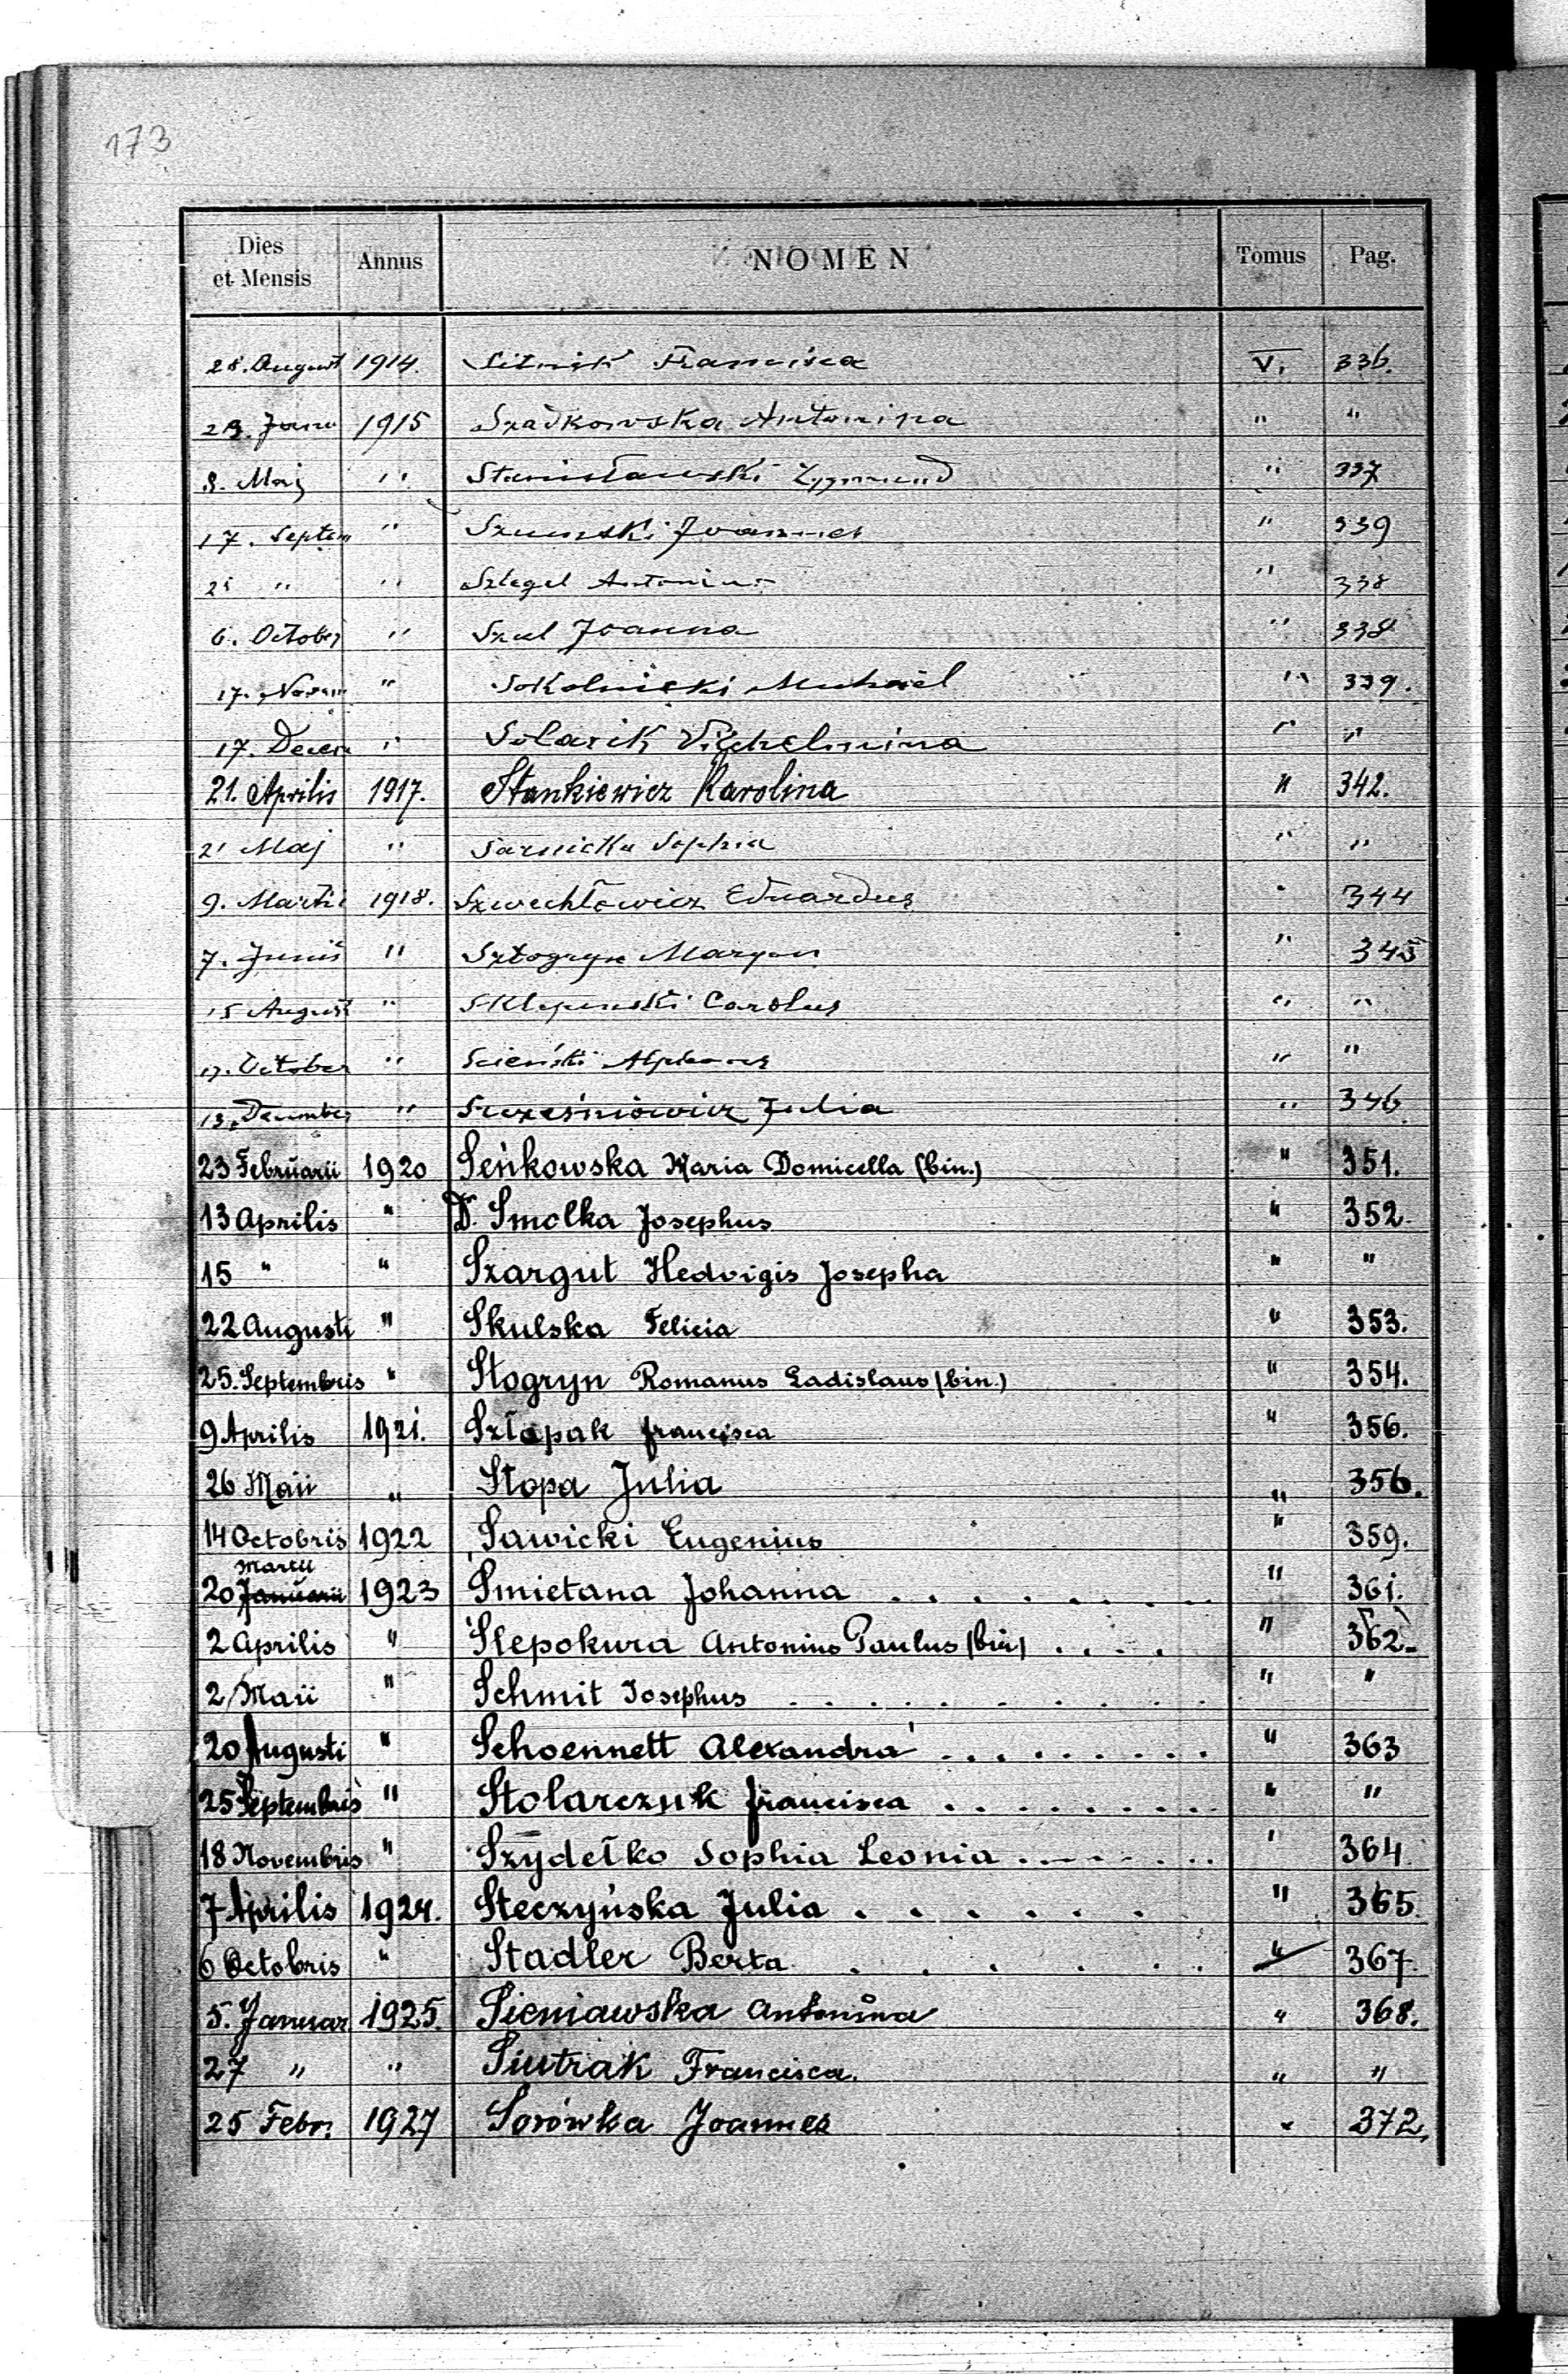 173
Dies et Mensis Annus NOMEN Tomus Pag.
28. August 1914. Sitnik Francisca V. 336.
23. Janu 1915 Szadkowska Antonina " "
8. Maj " Stanisławski Zygmund " 337
17. Septem " Szumski Joannes " 339
25 " " Szlegel Antonius " 338
6. October " Szul Joanna " 338
17. Novem " Sokolnicki Michael " 339.
17. Decem " Solarik Vilhelmina " "
21. Aprilis 1917. Stankiewicz Karolina " 342.
21 Maj " Sarnicka Sophia " "
9. Martii 1918. Szwechłowicz Eduardus " 344
7. Junii " Sztogryn Maryan " 345
15 August " Sklepinski Carolus " "
17. October " Scieński " "
13. December " Szcześniowicz Julia " 346
23 Februarii 1920 Seńkowska Maria Domicella (bin.) " 351.
13 Aprilis " Dr. Smolka Josephus " 352.
15 " " Szargut Hedvigis Josepha " "
22 Augusti " Skulska Felicia " 353.
25. Septembris " Stogryn Romanus Ladislaus (bin.) " 354.
9 Aprilis 1921. Szłapak Francisca " 356.
26 Maii " Stopa Julia " 356.
14 Octobris 1922 Sawicki Eugenius " 359.
Martii
20 Januarii 1923 Smietana Johanna . . . . . . . . " 361.
2 Aprilis " Slepokura Antonius Paulus (bin) . . . . " 362.
2 Maii " Schmit Josephus . . . . . . . . . " "
20 Augusti " Schoennett Alexandra . . . . . . . . " 363
25 Septembris " Stolarczuk Francisca . . . . . . . . " "
18 Novembris " Szydełko Sophia Leonia . . . . . . " 364.
7 Aprilis 1924. Steczyńska Julia . . . . . . " 365.
6 Octobris " Stadler Berta . . . . . . " 367.
5. Januar 1925. Sieniawska Antonina " 368.
27 " " Siutrak Francisca. " "
25 Febr. 1927 Sorówka Joannes " 372.